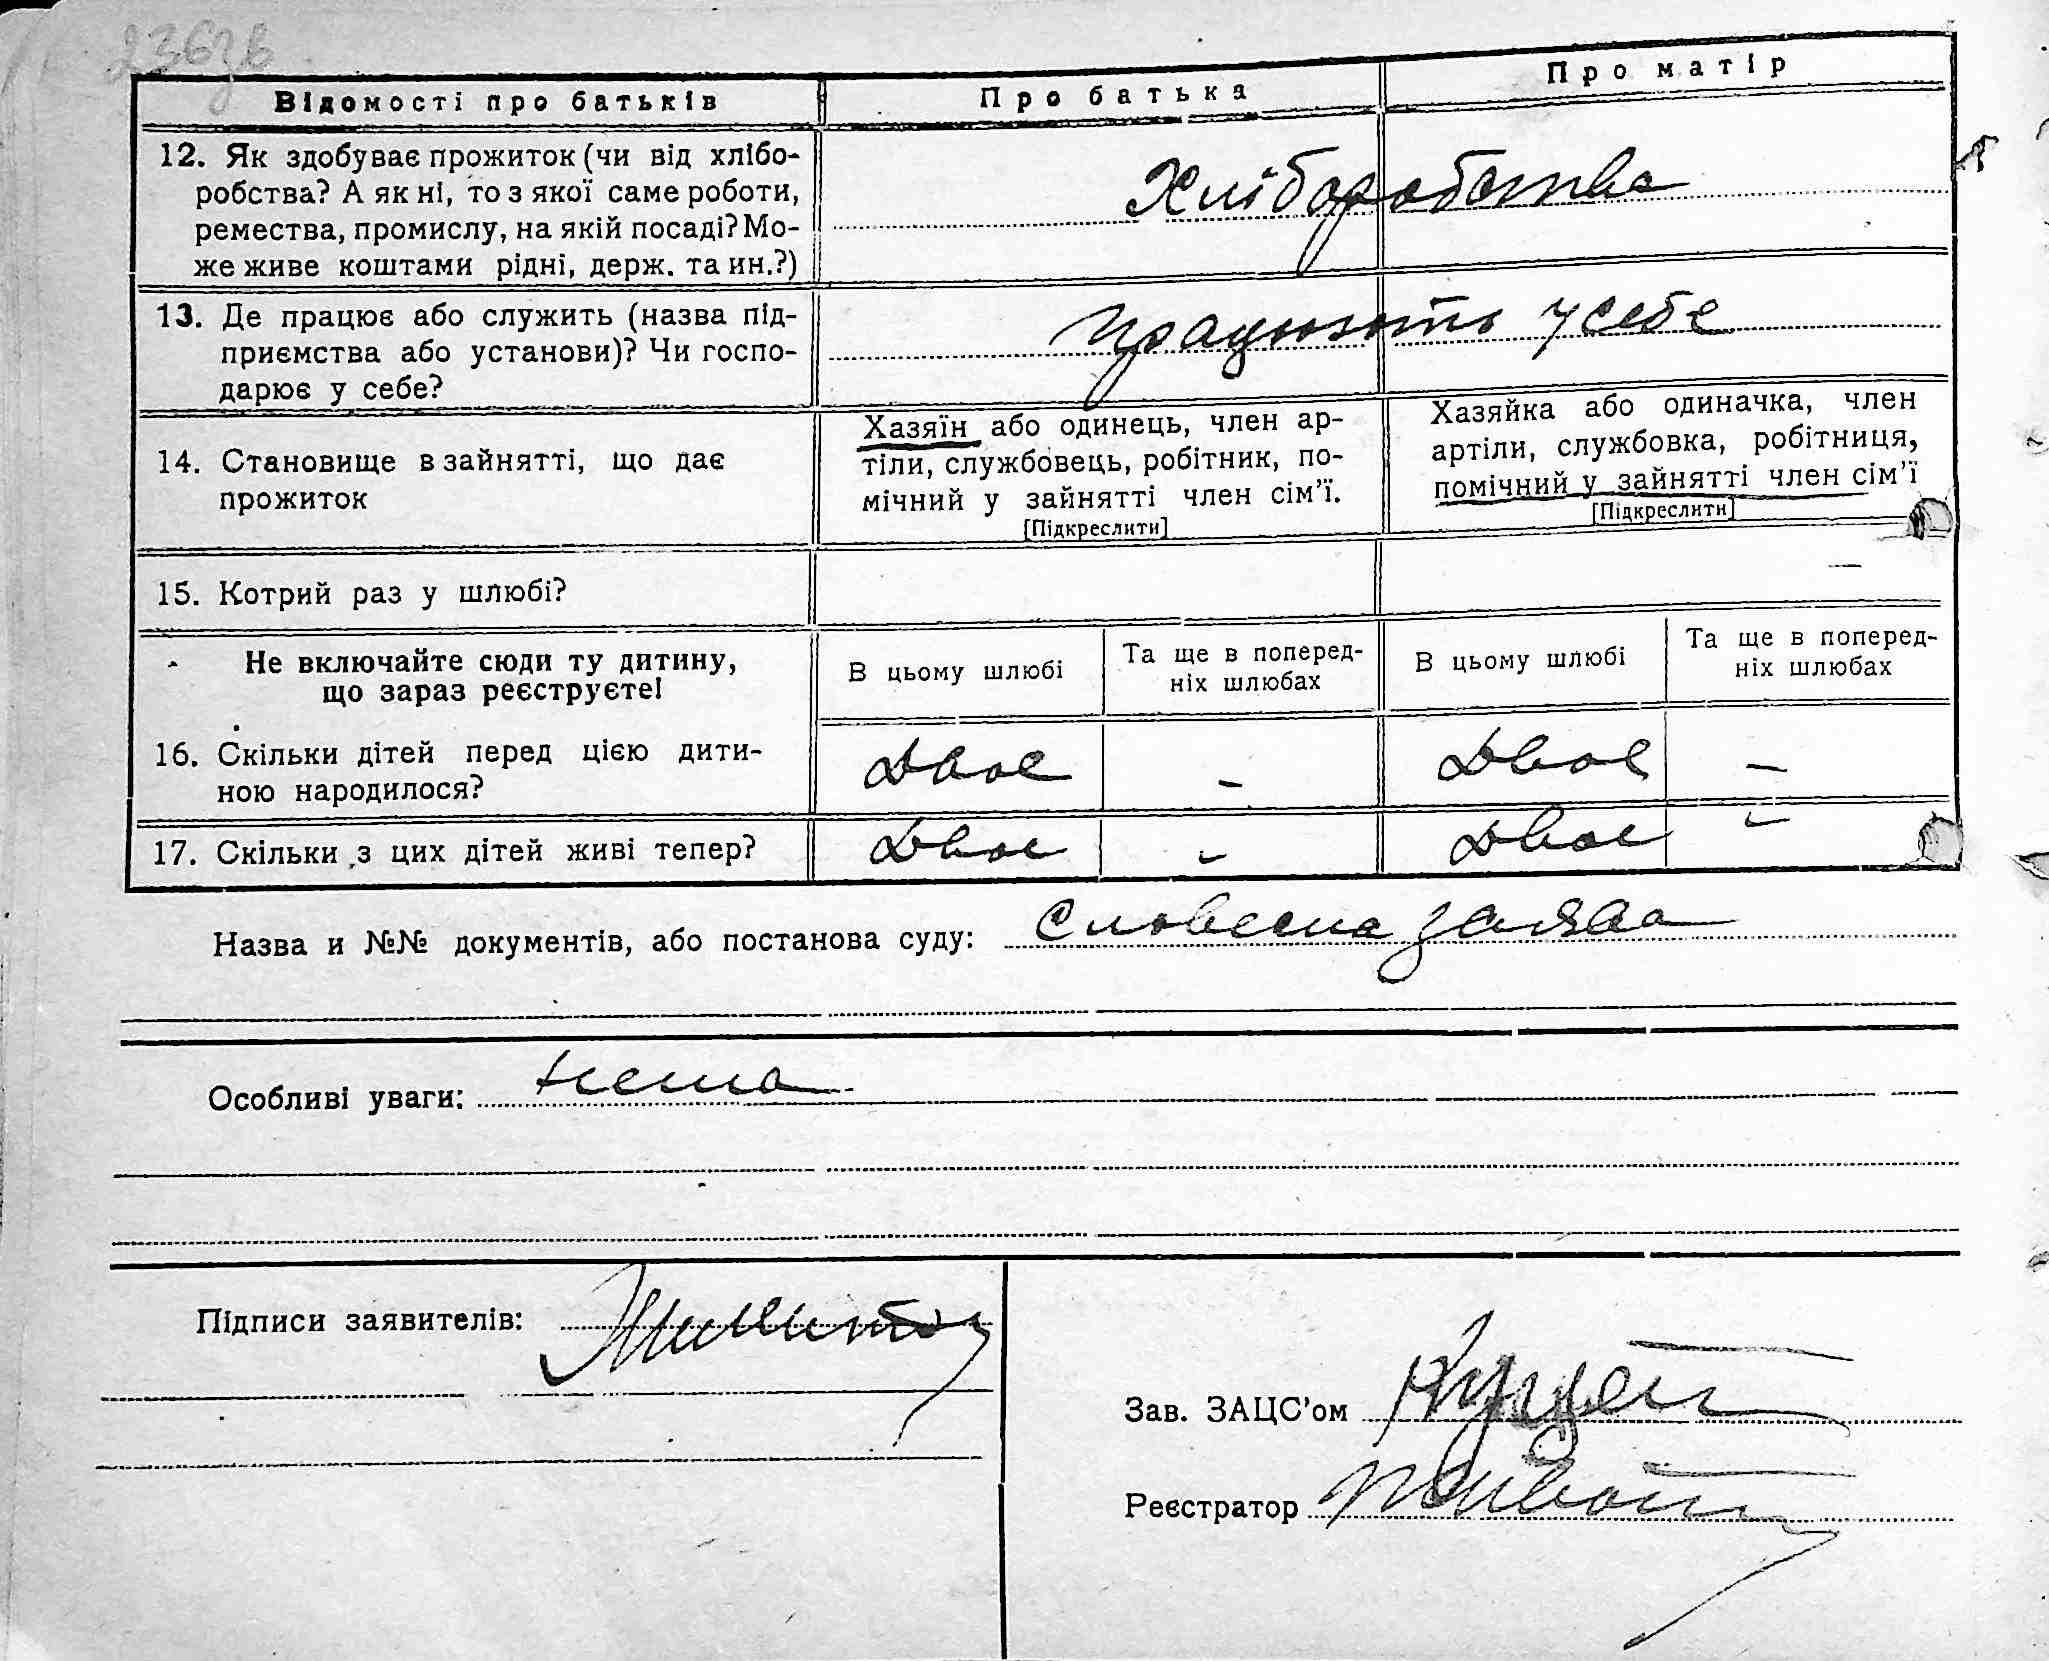 236зв
Відомості про батьків
Про батька
Про матір
12. Як здобуває прожиток (чи від хлібо-
робства? А як ні, то з якої саме роботи,
ремества, промислу, на якій посаді? Мо-
же живе коштами рідні, держ. та ин.?)
Хліборобства
13. Де працює або служить (назва під-
приємства або установи)? Чи госпо-
дарює у себе?
працюють у себе
14. Становище в зайнятті, що дає
прожиток
Хазяїн або одинець, член ар-
тіли, службовець, робітник, по-
мічний у зайнятті член сім'ї.
[Підкреслити]
Хазяйка або одиначка, член
артіли, службовка, робітниця,
помічний у зайнятті член сім'ї
[Підкреслити]
15. Котрий раз у шлюбі?
—
Не включайте сюди ту дитину,
що зараз реєструєте!
В цьому шлюбі
Та ще в поперед-
ніх шлюбах
В цьому шлюбі
Та ще в поперед-
ніх шлюбах
16. Скільки дітей перед цією дити-
ною народилося?
Двое – Двое –
17. Скільки з цих дітей живі тепер?
Двое – Двое –
Назва и №№ документів, або постанова суду: Словесна заява
Особливі уваги: нема
Підписи заявителів:
Зав. ЗАЦС'ом
Реєстратор